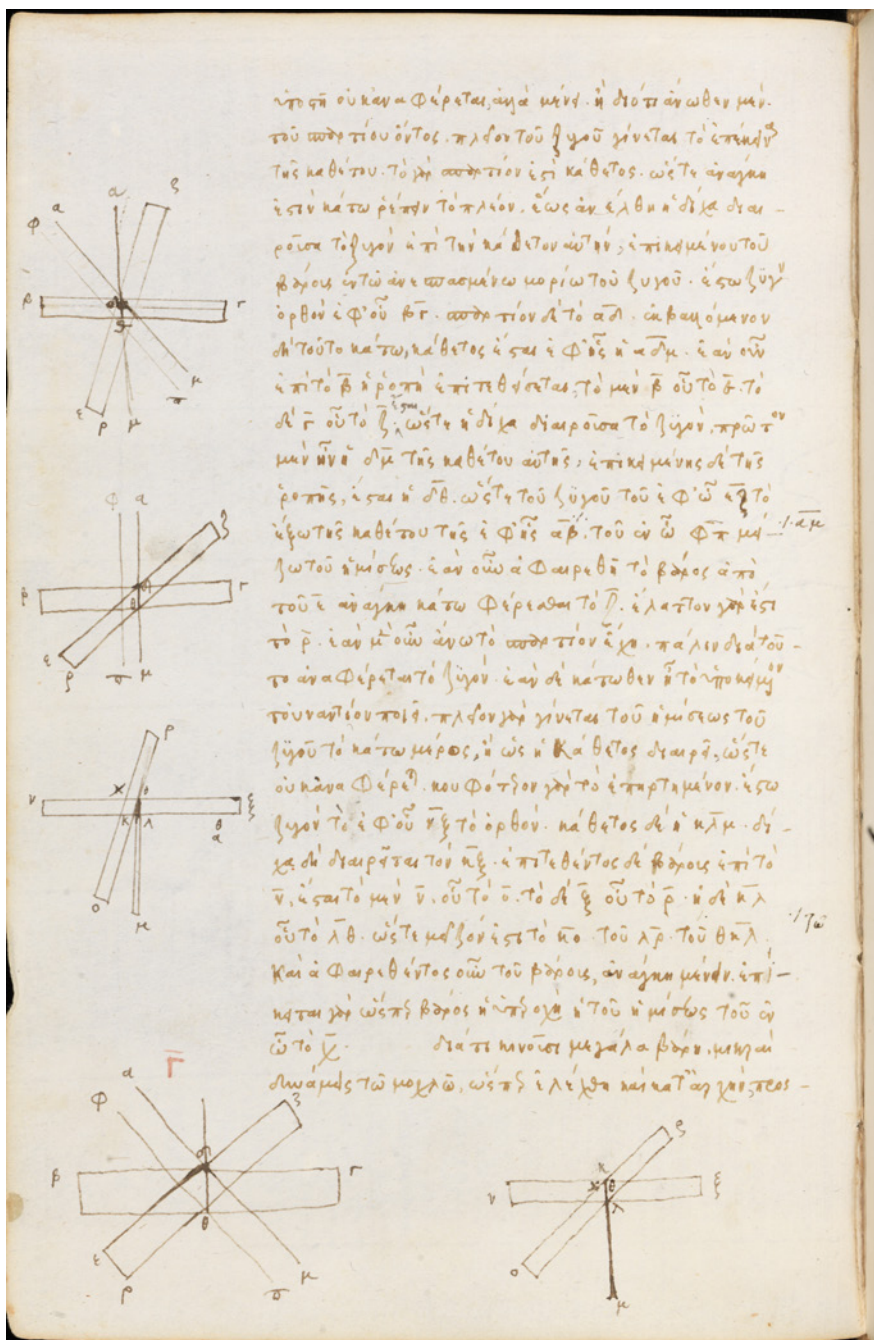 ὑποστῇ οὐκ ἀναφέρεται, ἀλλὰ μένει. ἢ διότι ἄνωθεν μὲν
τοῦ σπαρτίου ὄντος, πλεῖον τοῦ ζυγοῦ γίνεται τὸ ἐπέκεινα
τῆς καθέτου. τὸ γὰρ σπαρτίον ἐστὶ κάθετος. ὥστε ἀνάγκη
ἐστὶν κάτω ῥέπειν τὸ πλέον, ἕως ἂν ἔλθῃ ἡ δίχα διαι-
ροῦσα τὸ ζυγὸν ἐπὶ τὴν κάθετον αὐτήν, ἐπικειμένου τοῦ
βάρους ἐν τῷ ἀνεσπασμένω μορίω τοῦ ζυγοῦ. ἔστω ζυγὸν
ὀρθὸν ἐφ' οὗ β̅γ̅. σπαρτίον δὲ τὸ α̅δ̅. ἐκβαλλόμενον
δὴ τοῦτο κάτω, κάθετος ἔσται ἐφ' ἧς ἡ α̅δ̅μ̅. ἐὰν οὖν
ἐπὶ τὸ β̅ ἡ ῥοπὴ ἐπιτεθήσεται, τὸ μὲν β̅ οὗ τὸ ε̅. τὸ
δὲ γ̅ οὗ τὸ ζ̅. ἔσται ὥστε ἡ δίχα διαιροῦσα τὸ ζυγόν, πρῶτον
μὲν ἦν ἡ δ̅μ̅ τῆς καθέτου αὐτῆς, ἐπικειμένης δὲ τῆς
ῥοπῆς, ἔσται ἡ δ̅θ̅. ὥστε τοῦ ζυγοῦ τοῦ ἐφ' ὧ ε̅ζ̅ τὸ
ἔξω τῆς καθέτου τῆς ἐφ' ἧς α̅β̅. τοῦ ἐν ὧ φ̅π̅ μεί- ·/· α̅μ̅
ζω τοῦ ἡμίσεως. ἐὰν οὖν ἀφαιρεθῇ τὸ βάρος ἀπὸ
τοῦ ε̅ ἀνάγκη κάτω φέρεσθαι τὸ ζ̅. ἔλαττον γάρ ἐστι
τὸ ρ̅. ἐὰν μὲν οὖν ἄνω τὸ σπαρτίον ἔχῃ, πάλιν διὰ τοῦ-
το ἀναφέρεται τὸ ζυγόν. ἐὰν δὲ κάτωθεν ᾖ τὸ ὑποκείμενον
τοὐναντίον ποιεῖ. πλεῖον γὰρ γίνεται τοῦ ἡμίσεως τοῦ
ζυγοῦ τὸ κάτω μέρος, ἢ ὡς ἡ κάθετος διαιρεῖ, ὥστε
οὐκ ἀναφέρεται. κουφότερον γὰρ τὸ ἐπηρτημένον. ἔστω
ζυγὸν τὸ ἐφ' οὗ ν̅ξ̅ τὸ ὀρθόν. κάθετος δὲ ἡ κ̅λ̅μ̅. δί-
χα δὴ διαιρεῖται τὸν ν̅ξ̅. ἐπιτεθέντος δὲ βάρους ἐπὶ τὸ
ν̅, ἔσται τὸ μὲν ν̅. οὗ τὸ ο̅. τὸ δὲ ξ̅ οὗ τὸ ρ̅. ἡ δὲ κ̅λ̅
οὗ τὸ λ̅θ̅. ὥστε μεῖζόν ἐστι τὸ κ̅ο̅. τοῦ λ̅ρ̅. τοῦ θ̅κ̅λ̅ ·/· τῶ
καὶ ἀφαιρεθέντος οὖν τοῦ βάρους, ἀνάγκη μένειν. ἐπί-
κειται γὰρ ὥσπερ βάρος ἡ ὑπεροχὴ ἡ τοῦ ἡμίσεως τοῦ ἐν
ὧ τὸ χ̅. διατὶ κινοῦσι μεγάλα βάρη, μικραὶ
δυνάμεις τῶ μοχλῶ, ὥσπερ ἐλέχθη καὶ κατ' ἀρχὴν, προσ-
α
α
ζ
φ
β
δ
γ
θ
ε
ρ
μ
π
μ
φ
α
ζ
β
δ
γ
θ
ε
ρ
π
μ
ρ
ν
χ
ο
ξ
κ
λ
θ
α
ο
μ
γ̅
α
φ
ζ
β
δ
γ
θ
ε
ρ
π
μ
ρ
κ
ν
χ
θ
ξ
λ
ο
μ